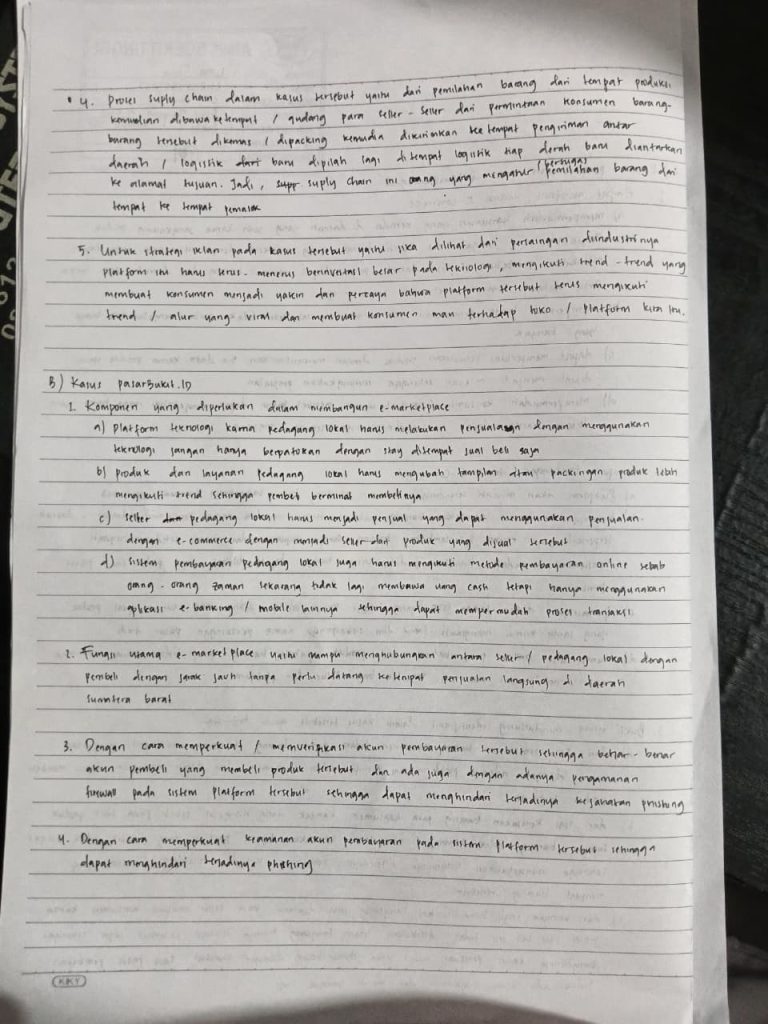 4. Proses suply chain dalam kasus tersebut yaitu dari pemilahan barang dari tempat produksi
kemudian dibawa ketempat / gudang para seller-seller dari permintaan konsumen barang-
barang tersebut dikemas / dipacking kemudia dikirimkan ke tempat pengiriman antar
daerah / logistik baru dipilah lagi ditempat logistik tiap derah baru diantarkan
ke alamat tujuan. Jadi, supply chain ini orang yang mengatur (bertugas) pemilahan barang dari
tempat ke tempat pemasok
5. Untuk strategi iklan pada kasus tersebut yaitu jika dilihat dari persaingan diindustrinya
platform itu harus terus-menerus berinvestasi besar pada teknologi, mengikuti trend-trend yang
membuat konsumen menjadi yakin dan percaya bahwa platform tersebut terus mengikuti
trend / alur yang viral dan membuat konsumen mau terhadap toko / platform kita itu.
B) Kasus PasarBukit.ID
1. Komponen yang diperlukan dalam membangun e-marketplace
a) platform teknologi karna pedagang lokal harus melakukan penjualan dengan menggunakan
teknologi jangan hanya berpatokan dengan stay ditempat jual beli saja
b) produk dan layanan pedagang lokal harus mengubah tampilan atau packingan produk lebih
mengikuti trend sehingga pembeli berminat membelinya
c) seller pedagang lokal harus menjadi penjual yang dapat menggunakan penjualan
dengan e-commerce dengan menjadi seller dari produk yang dijual tersebut
d) sistem pembayaran pedagang lokal juga harus mengikuti metode pembayaran online sebab
orang-orang zaman sekarang tidak lagi membawa uang cash tetapi hanya menggunakan
aplikasi e-banking / mobile lainnya sehingga dapat mempermudah proses transaksi
2. Fungsi utama e-marketplace yaitu mampu menghubungkan antara seller / pedagang lokal dengan
pembeli dengan jarak jauh tanpa perlu datang ketempat penjualan langsung di daerah
sumatera barat
3. Dengan cara memperkuat / memverifikasi akun pembayaran tersebut sehingga benar-benar
akun pembeli yang membeli produk tersebut dan ada juga dengan adanya pengamanan
firewall pada sistem platform tersebut sehingga dapat menghindari terjadinya kejahatan phishing
4. Dengan cara memperkuat keamanan akun pembayaran pada sistem platform tersebut sehingga
dapat menghindari terjadinya phishing
KKY